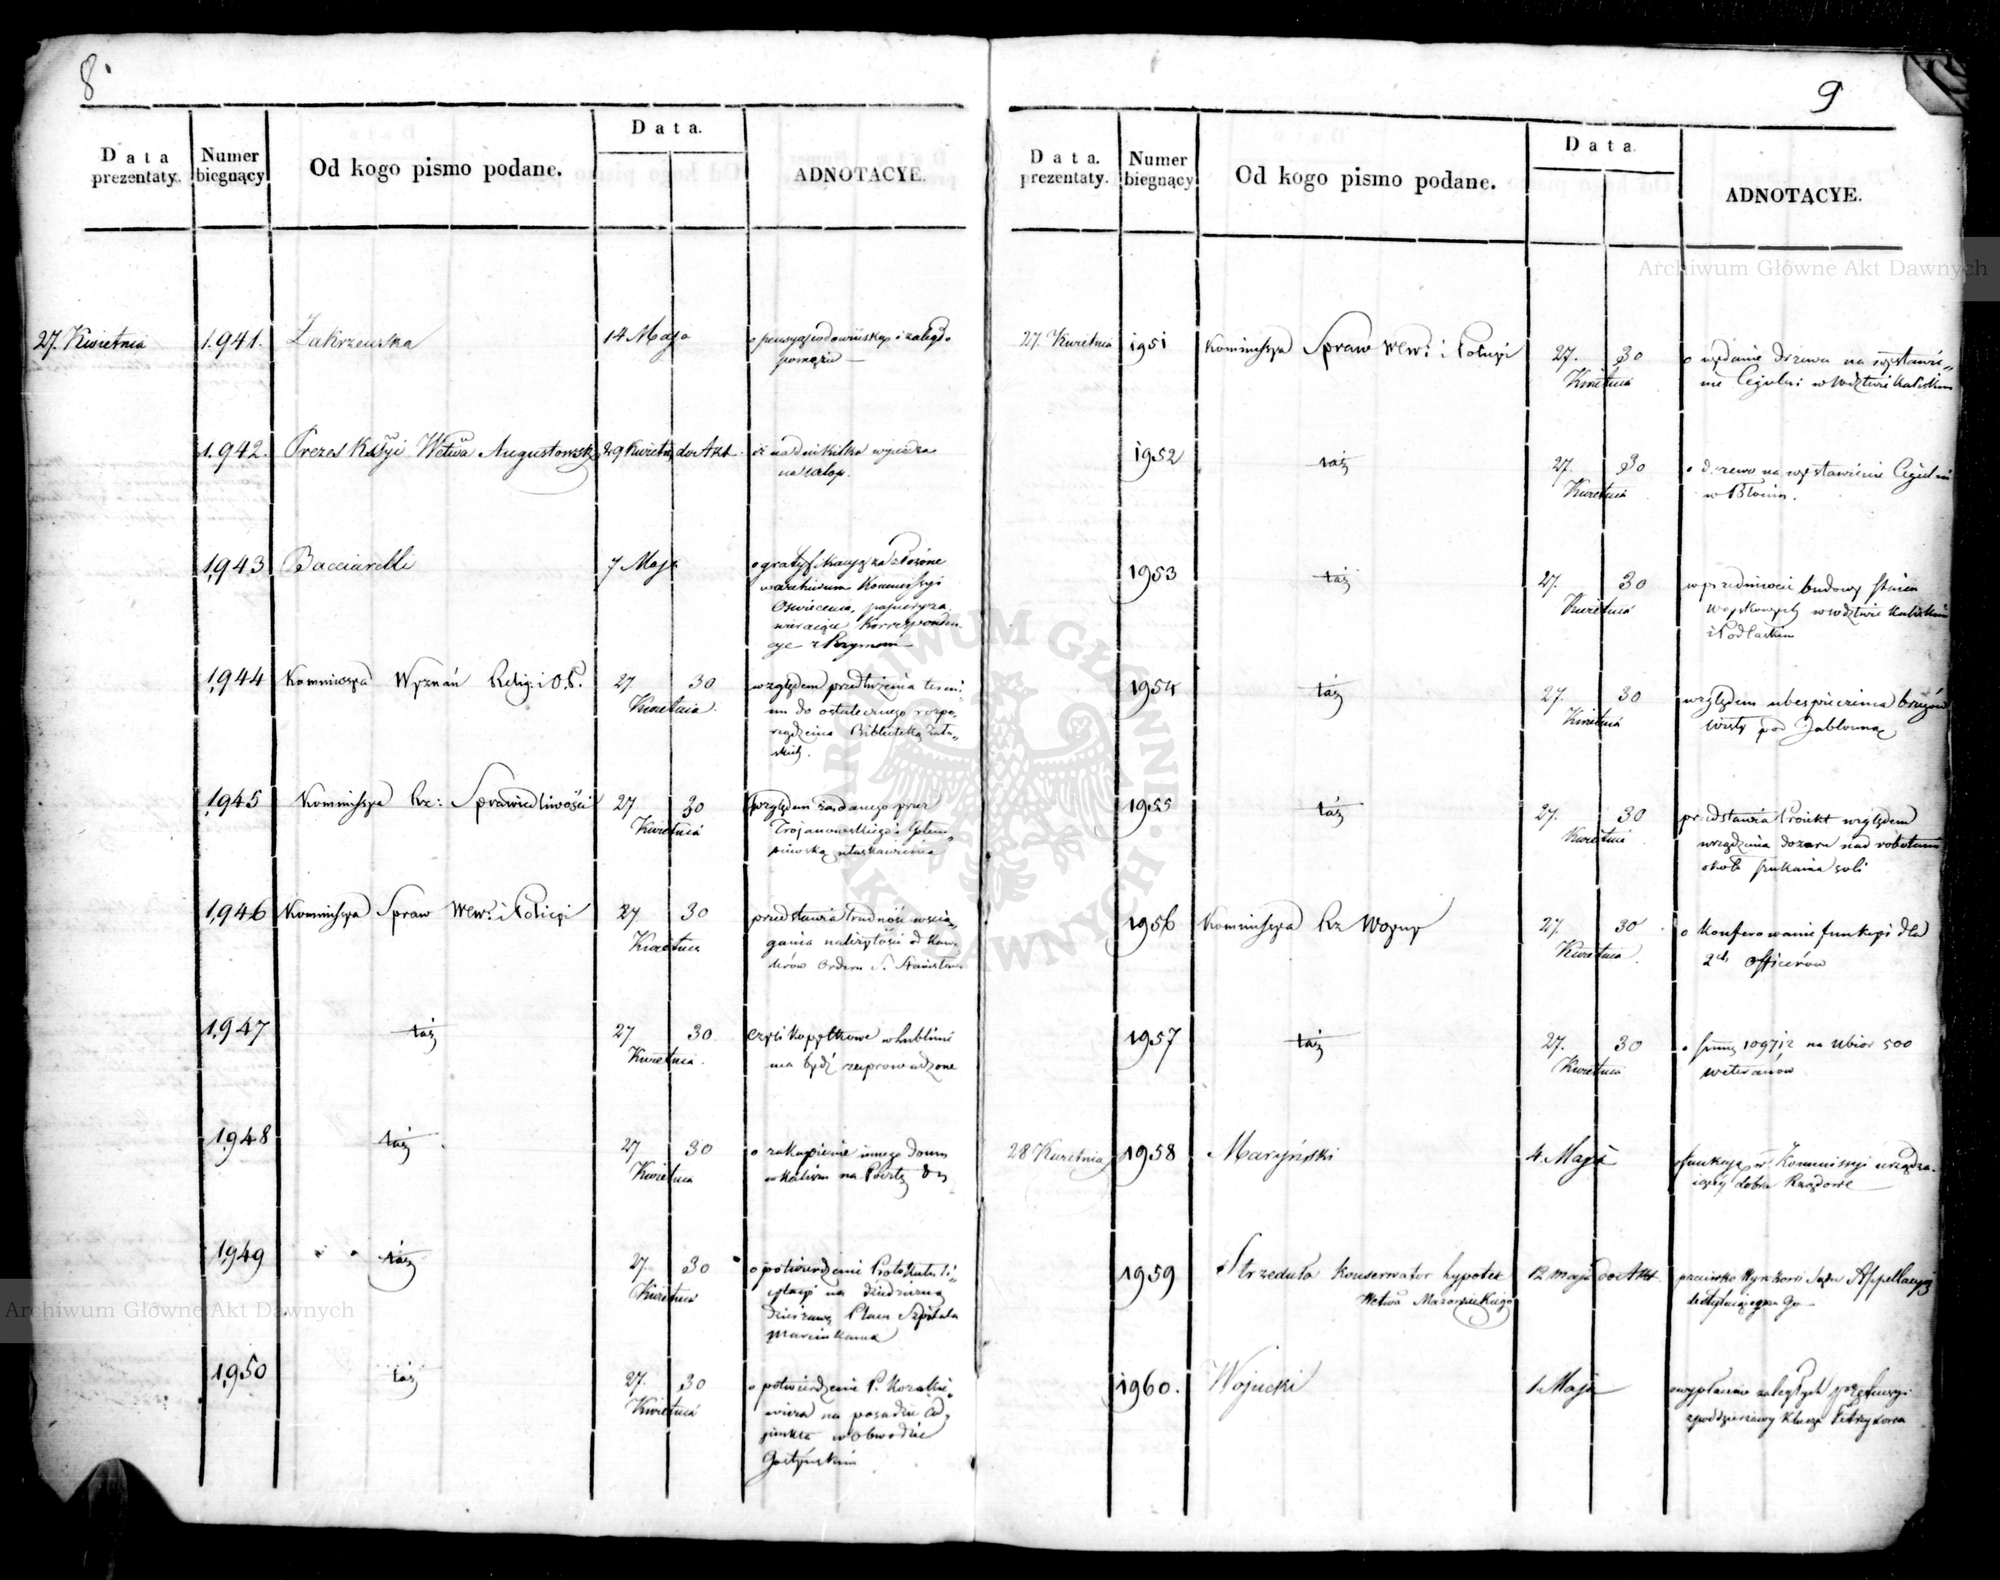 8
Data prezentaty.
Numer biegnący
Od kogo pismo podane.
Data.
ADNOTACYE.
27. Kwietnia
1.941.
Zakrzewska
14 Maja
1.942.
Prezes Kssyi Wetwa Augustowsk
29 Kwietn do Akt
iż na dni kilka wyjeżdza
na urlop.
1,943
Bacciarelli
7 Maja
o gratyfikacyą za złożone
w archiwum Kommissyi
Oświecenia, papiery za
wieraiące Korresponden
cye z Rzymem
1,944
Kommissya Wyznań Relig: i O. P.
27 30
Kwietnia.
względem przedłużenia termi
nu do ostatecznego rozpo,
rządzenia Biblioteką Zału,,
skich.
1,945
Kommissya Rz: Sprawiedliwości
27 30
Kwietnia
względem żądanego przez
Trojanowskiego i
ułaskawienia
1,946
Kommissya Spraw Wew: i Policyi
27 30
Kwietnia
przedstawia trudność wscią,
gania należytości od Kawa
lerów Orderu S. Stanisława
1,947
taż
27 30.
Kwietnia.
czyli kopytkowe w Lublinie
ma bydź zaprowadzone
1,948
taż
27 30
Kwietnia
o zakupienie innego domu
w Kaliszu na Pocztę
1,949
taż
27. 30
Kwietnia
o potwierdzenie Protokułu li,,
cytacyi na dziedziczną
dzierżawę Placu Szpitala
Marcinkanek
1,950
taż
27. 30
Kwietnia
o potwierdzenie P.
na posadzie Ad,
junkta w Obwodzie
Gostyńskim
9
Data. prezentaty.
Numer biegnący
Od kogo pismo podane.
Data
ADNOTACYE.
27. Kwietnia
1951
Kommissya Spraw Wew: i Policyi
27. 30
Kwietnia
o wydanie drzewa na wystawie,,
nie Cegielni w Wdztwie Kaliskim
1952
taż
27. 30
Kwietnia
o drzewo na wystawienie Cegielni
w Błoniu.
1953
taż
27. 30
Kwietnia
w przedmiocie budowy stáien
Woyskowych w Wdztwie Kaliskim
i Podlaskim
1954
taż
27. 30
Kwietnia
względem ubespieczenia brzegów
Wisły pod Jabłonną
1955
taż
27. 30
Kwietnia
przedstawia Proiekt względem
urządzenia dozoru nad robotami
około szukania soli
1956
Kommissya Rz Woyny
27. 30
Kwietnia.
o Konferowanie funkcyi dla
2ch Officerów
1957
taż
27. 30
Kwietnia
o summę 10971 na Ubior 500
weteranów
28 Kwietnia
1958
Maryński
4. Maja
o funkcyę w Kommissyi urządza,
iącey dobra Rządowe
1959
Strzeduła Konserwator hypotek
Wetwa Mazowieckiego
12 maja do Akt
przeciwko Wyrokowi Sądu Appellacyj
go
1960.
Wojucki
1. Maja
o wypłacenie zaległych
z poddzierzawy Klucza
Archiwum Główne Akt Dawnych
Archiwum Główne Akt Dawnych
ARCHIWUM GŁÓWNE AKT DAWNYCH